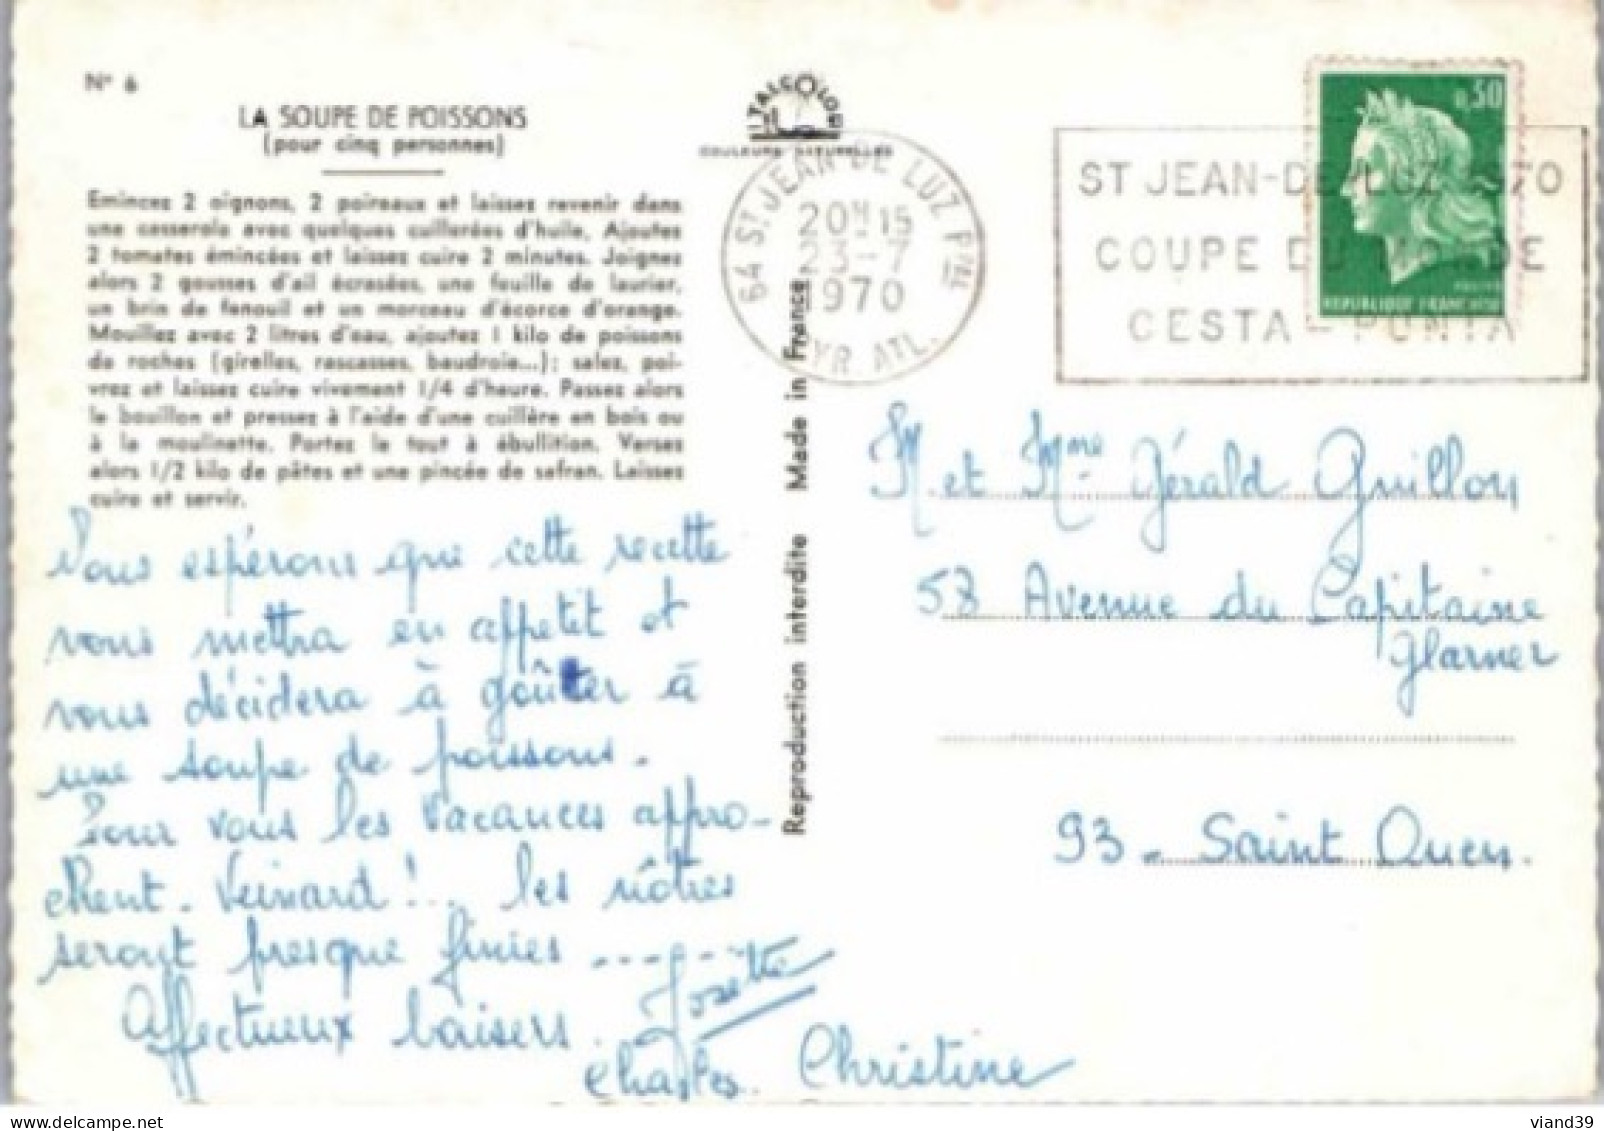 N° 6
LA SOUPE DE POISSONS
(pour cinq personnes)
Emincez 2 oignons, 2 poireaux et laissez revenir dans
une casserole avec quelques cuillerées d'huile. Ajoutez
2 tomates émincées et laissez cuire 2 minutes. Joignez
alors 2 gousses d'ail écrasées, une feuille de laurier,
un brin de fenouil et un morceau d'écorce d'orange.
Mouillez avec 2 litres d'eau, ajoutez 1 kilo de poissons
de roches (girelles, rascasses, baudroie...); salez, poi-
vrez et laissez cuire vivement 1/4 d'heure. Passez alors
le bouillon et pressez à l'aide d'une cuillère en bois ou
à la moulinette. Portez le tout à ébullition. Versez
alors 1/2 kilo de pâtes et une pincée de safran. Laissez
cuire et servir.
Nous espérons que cette recette
vous mettra en appetit et
vous décidera à goûter à
une soupe de poissons.
Pour vous les vacances appro-
chent. Veinard !.. les nôtres
seront presque finies ------
Affectueux baisers. Josette
Charles. Christine
ITALCOLOR
COULEURS NATURELLES
Reproduction interdite Made in France
64 ST JEAN-DE-LUZ PPAL
20H15
23-7
1970
PYR. ATL.
ST JEAN-DE-LUZ 1970
COUPE DU MONDE
CESTA-PUNTA
0,30
REPUBLIQUE FRANCAISE
M. et Mme Gérald Guillou
58 Avenue du Capitaine
Glarner
93 - Saint Ouen.
viand39